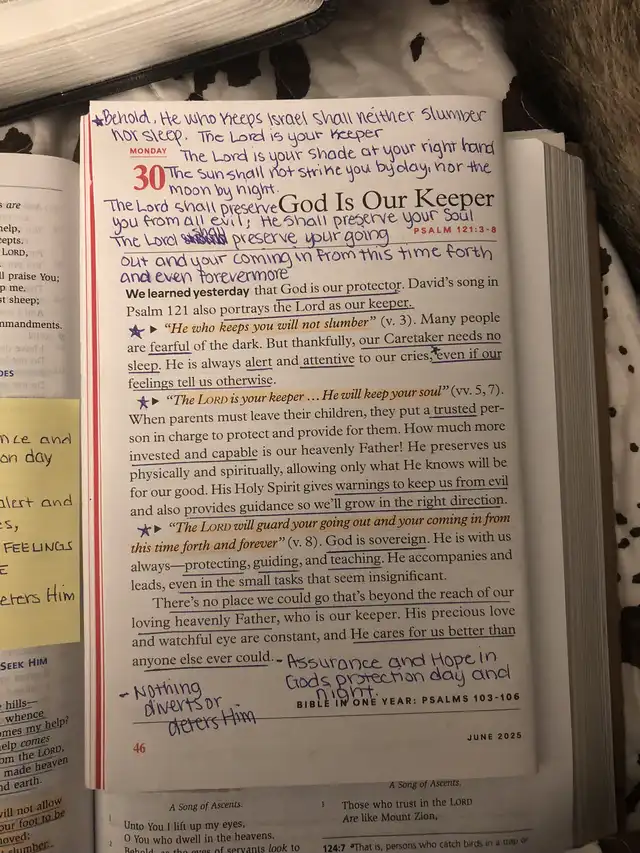 ★Behold, He who keeps Israel shall neither slumber
nor sleep. The Lord is your Keeper
MONDAY
30
The Lord is your shade at your right hand
The Sun shall not strike you by day, nor the
moon by night.
The Lord shall preserve
God Is Our Keeper
you from all evil; He shall preserve your soul
PSALM 121:3-8
The Lord shall preserve your going
out and your coming in from this time forth
and even forevermore
We learned yesterday that God is our protector. David's song in
Psalm 121 also portrays the Lord as our keeper.
★ ▶ "He who keeps you will not slumber" (v. 3). Many people
are fearful of the dark. But thankfully, our Caretaker needs no
sleep. He is always alert and attentive to our cries, even if our
feelings tell us otherwise.
★ ▶ "The LORD is your keeper ... He will keep your soul" (vv. 5, 7).
When parents must leave their children, they put a trusted per-
son in charge to protect and provide for them. How much more
invested and capable is our heavenly Father! He preserves us
physically and spiritually, allowing only what He knows will be
for our good. His Holy Spirit gives warnings to keep us from evil
and also provides guidance so we'll grow in the right direction.
★ ▶ "The LORD will guard your going out and your coming in from
this time forth and forever" (v. 8). God is sovereign. He is with us
always—protecting, guiding, and teaching. He accompanies and
leads, even in the small tasks that seem insignificant.
There's no place we could go that's beyond the reach of our
loving heavenly Father, who is our keeper. His precious love
and watchful eye are constant, and He cares for us better than
anyone else ever could.
- Assurance and Hope in
Gods protection day and
night.
- Nothing
diverts or
deters Him
BIBLE IN ONE YEAR: PSALMS 103-106
46
JUNE 2025
are
help,
LORD,
praise You;
p me.
st sheep;
mmandments.
nce and
on day
alert and
FEELINGS
eters Him
SEEK HIM
hills—
whence
omes my help?
help comes
om the LORD,
made heaven
nd earth.
will not allow
our foot to be
moved;
slumber.
A Song of Ascents.
Unto You I lift up my eyes,
2 O You who dwell in the heavens.
Behold, as the eyes of servants look to
A Song of Ascents.
1 Those who trust in the LORD
Are like Mount Zion,
124:7 That is, persons who catch birds in a trap or